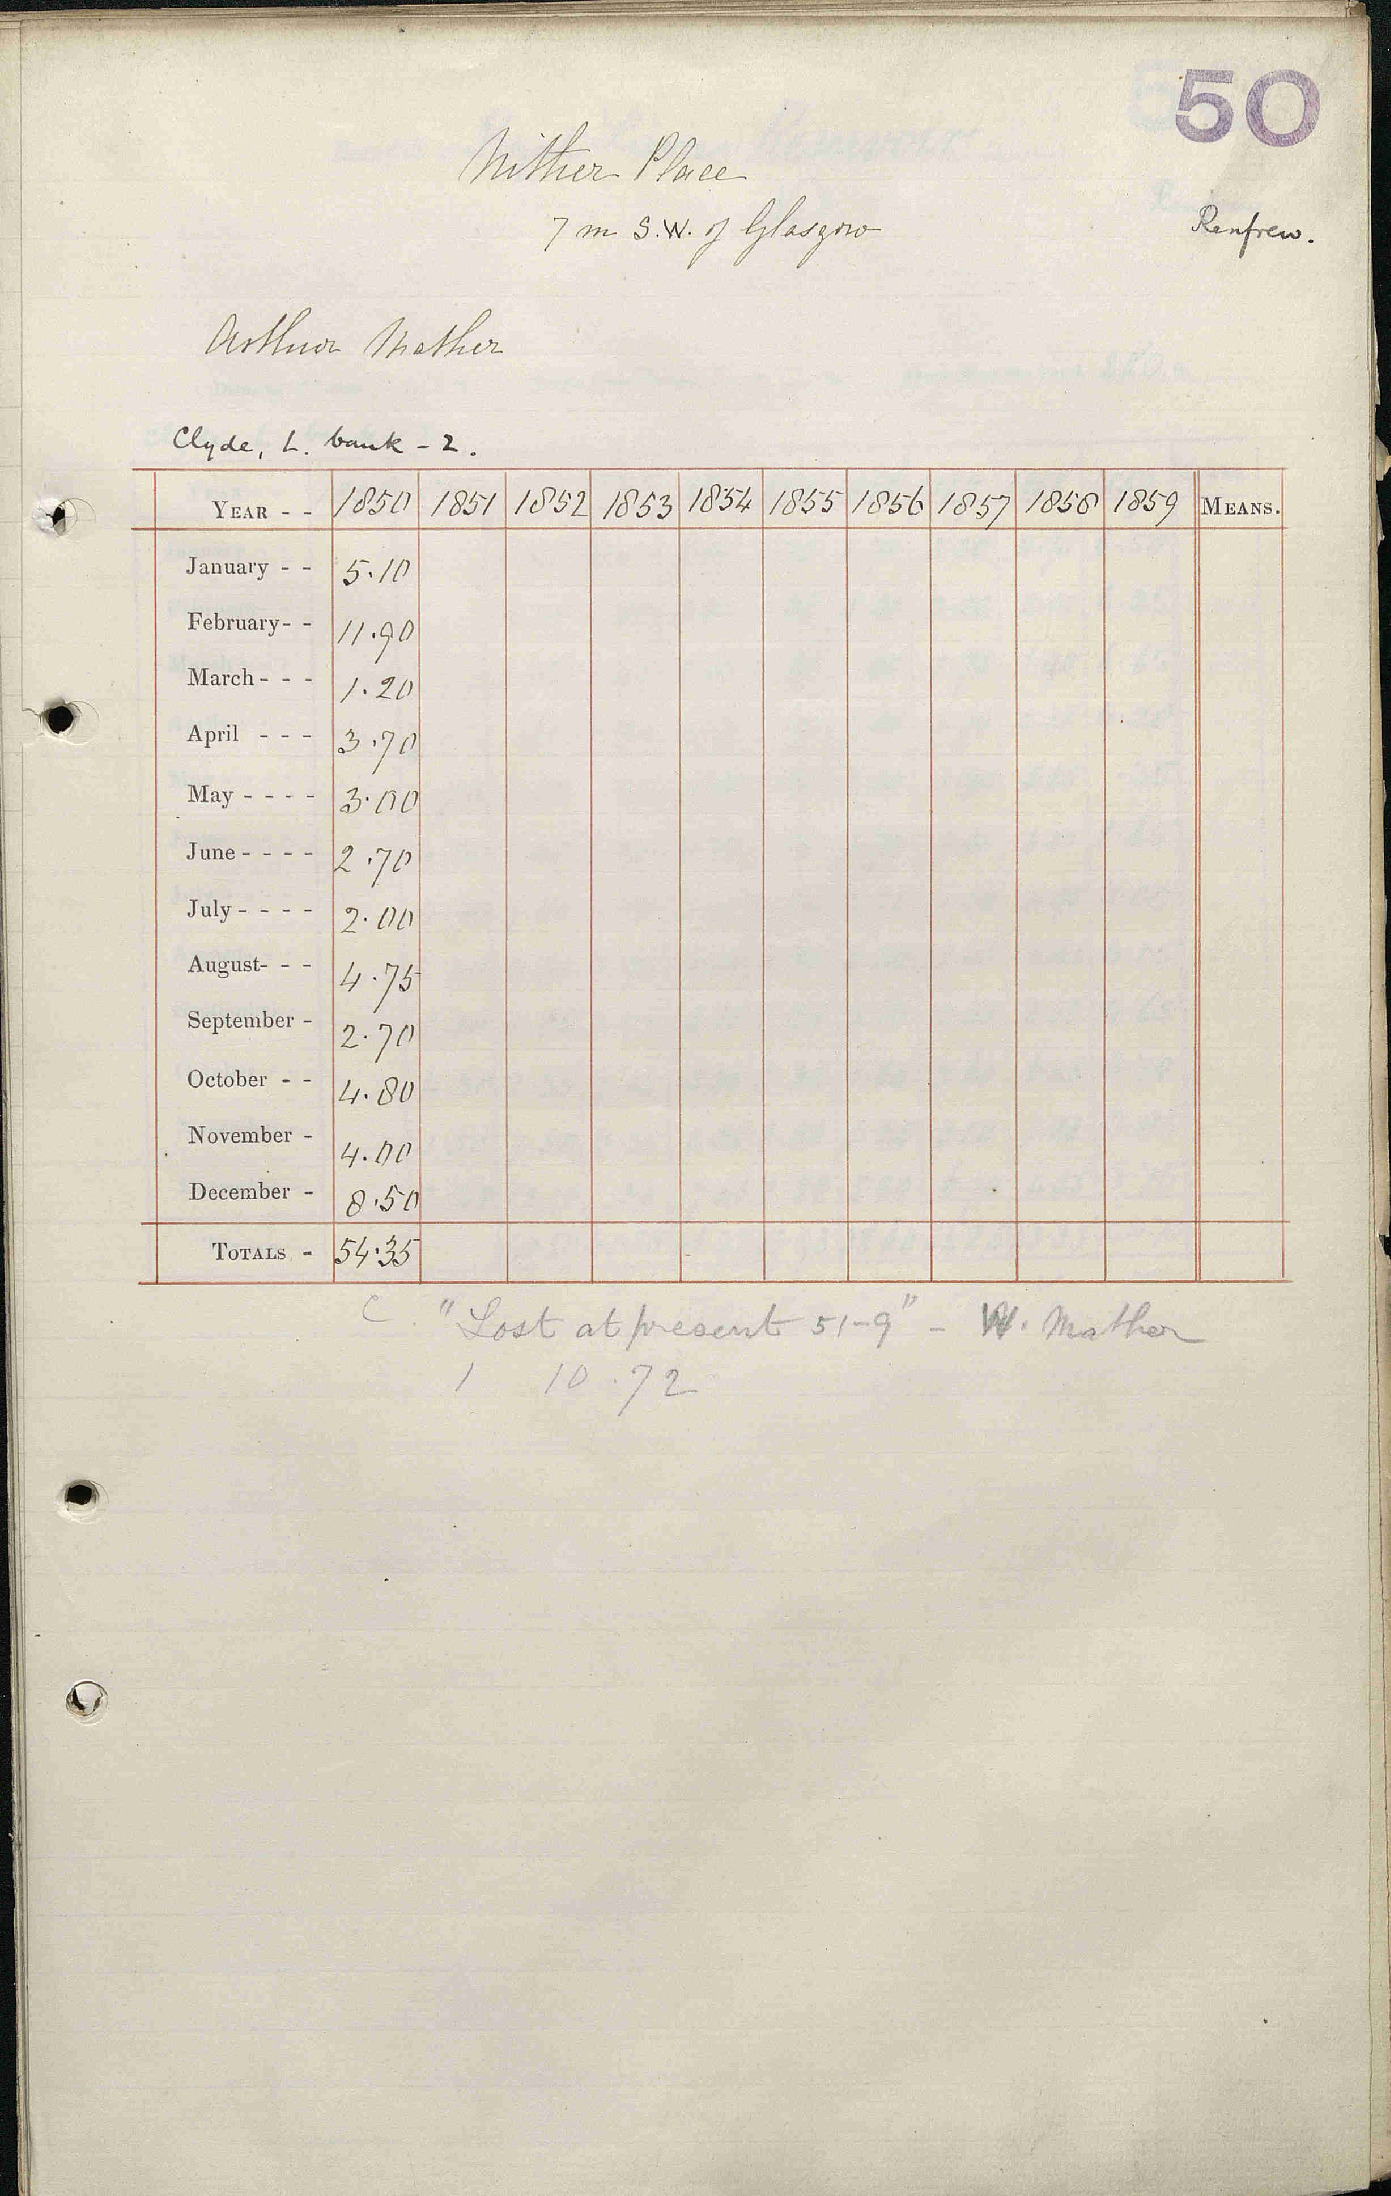 50
Nither Place
7 m S.W. of Glasgow
Renfrew.
Arthur Mather
Clyde, L. bank - 2.
YEAR - - 1850 1851 1852 1853 1854 1855 1856 1857 1858 1859 MEANS.
January - - 5.10
February - - 11.90
March - - - 1.20
April - - - 3.70
May - - - - 3.00
June - - - - 2.70
July - - - - 2.00
August - - - 4.75
September - 2.70
October - - 4.80
November - 4.00
December - 8.50
TOTALS - 54.35
C "Lost at present 51-9" - W. Mather
1 10.72